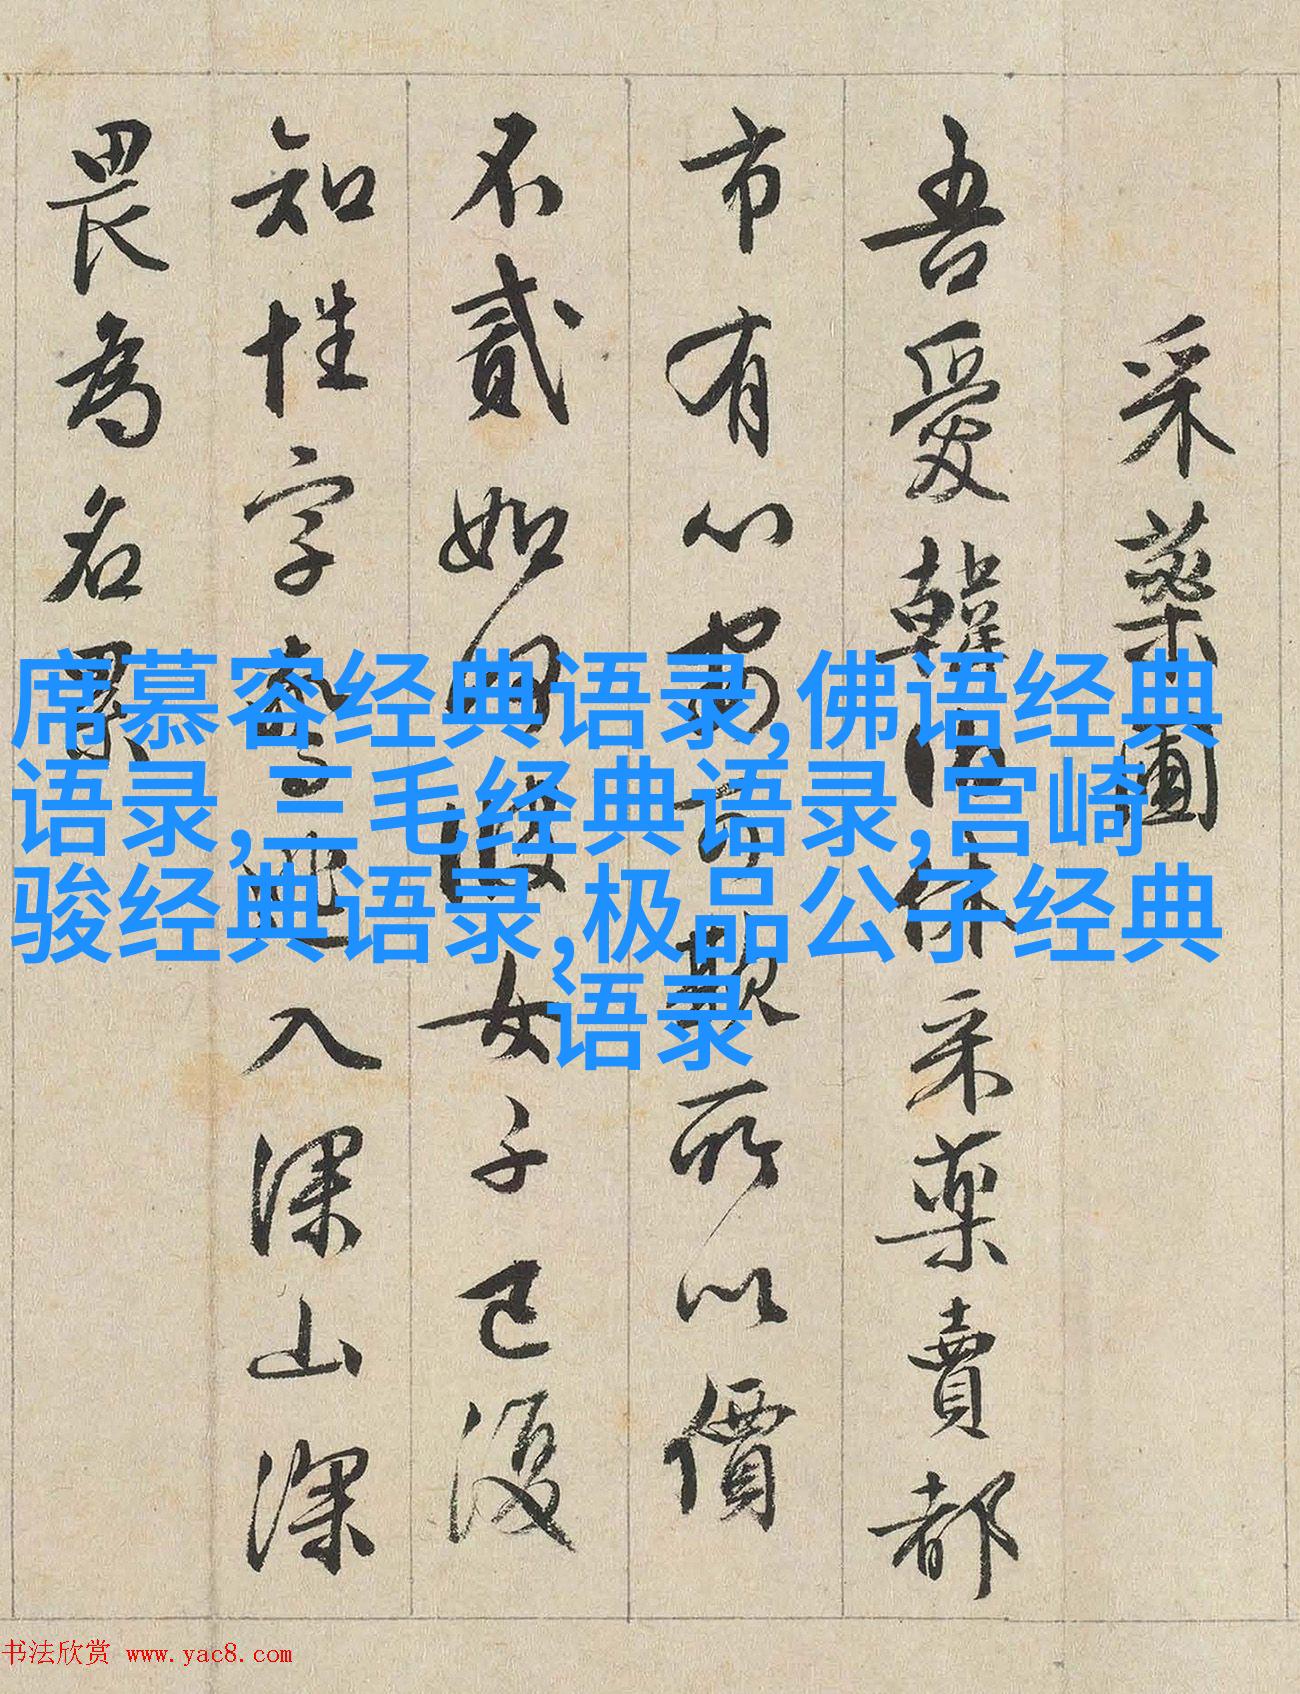 采藥圃
吾愛韓伯休采藥賣都
市有心安可欺所以價
不貳如何彼女子已復
知姓字驚逃入深山深
畏為名累
席慕容经典语录,佛语经典
语录,三毛经典语录,宫崎
骏经典语录,极品公子经典
语录
书法欣赏 www.yac8.com